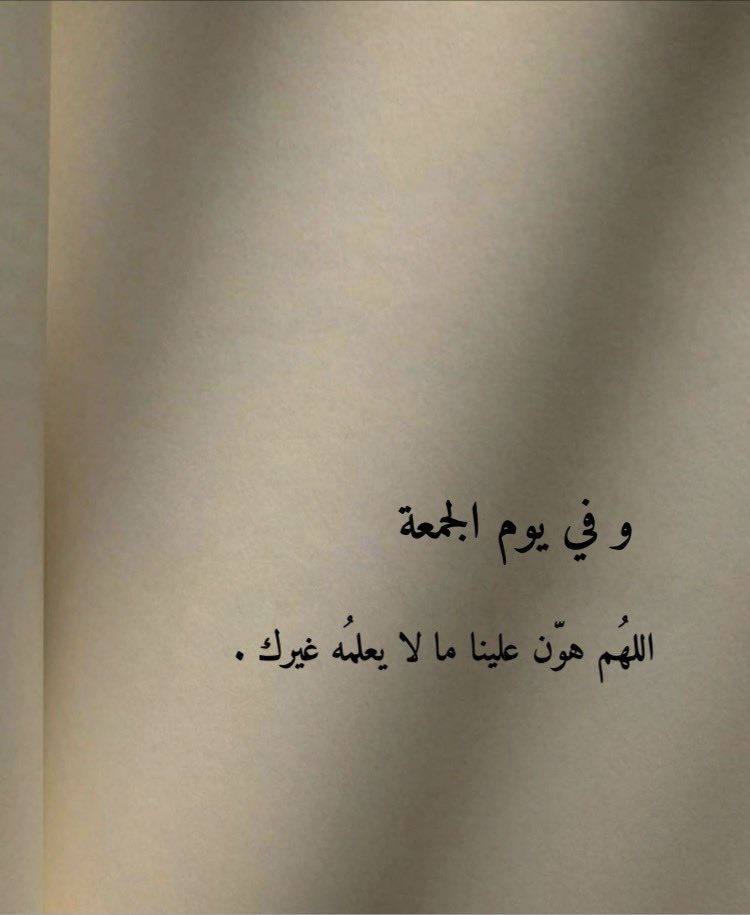 و في يوم الجمعة
اللهُم هوّن علينا ما لا يعلمُه غيرك .